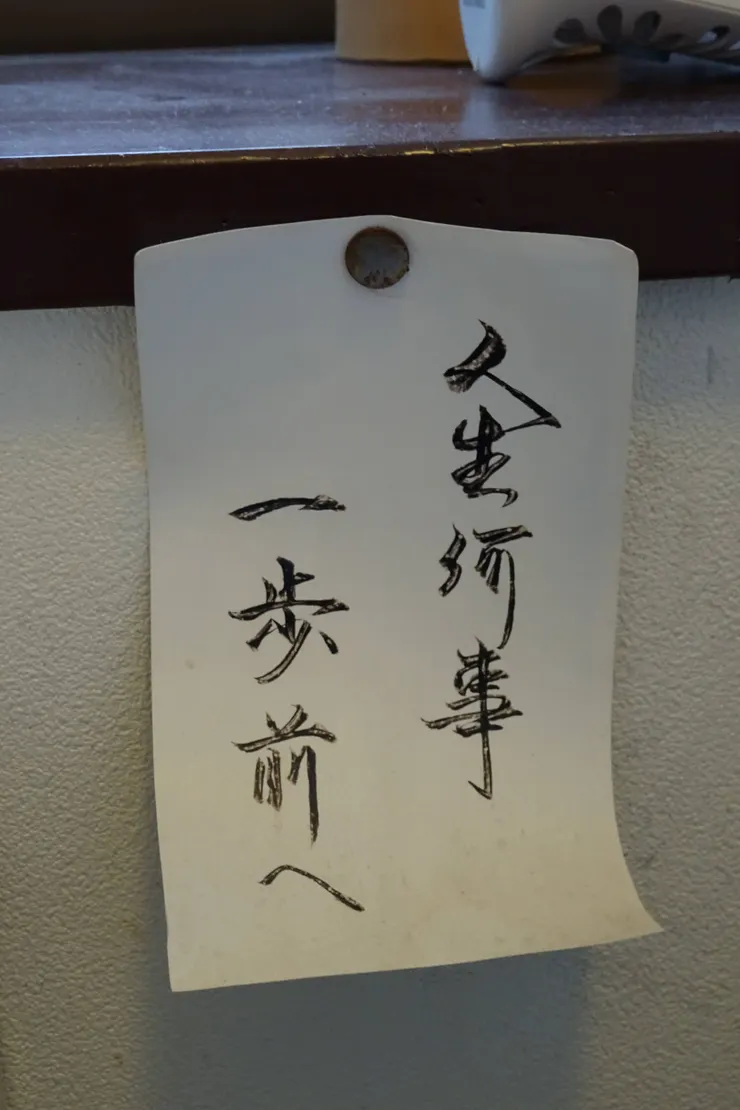 人生何事
一歩前へ